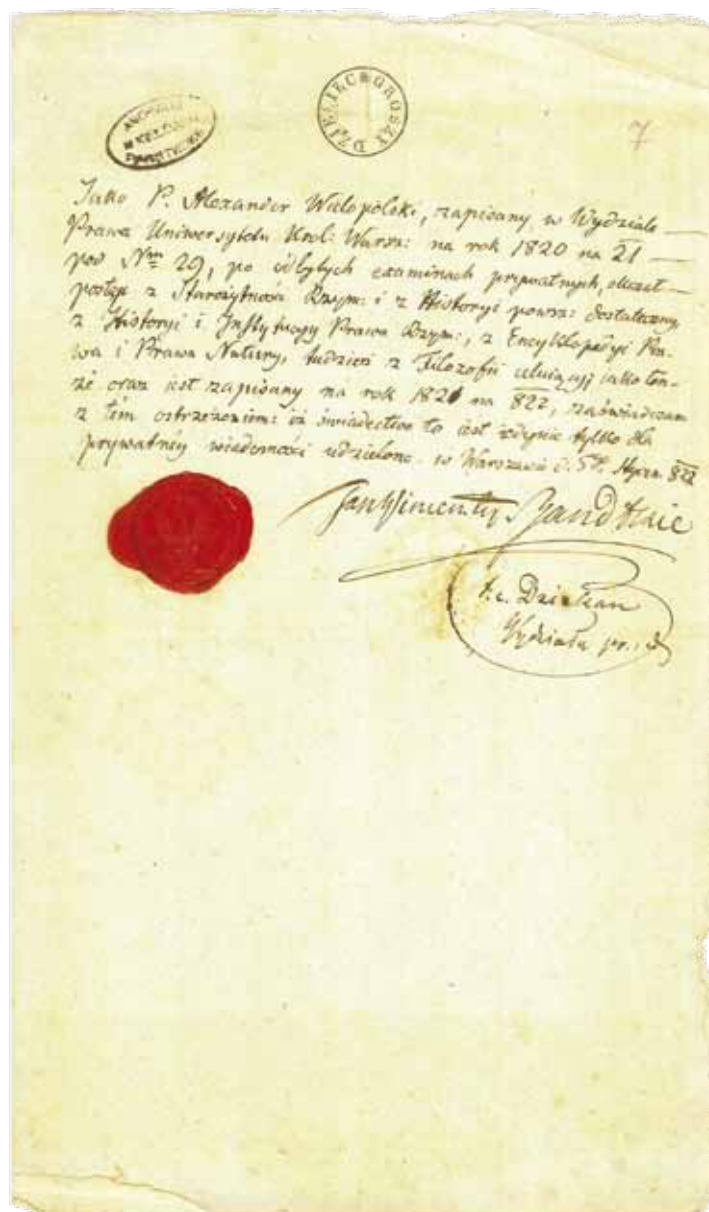 DZIESIĘC GROSZY
7
Jako P. Alexander Wielopolski, zapisany w Wydziale
Prawa Uniwersytetu Krol: Warsz: na rok 1820 na 21
pod Nrm 29, po odbytych examinach prywatnych, okazał
postęp z Starożytności Rzym: i z Historyi powsz: dostateczny,
z Historyi i Instytucyy Prawa Rzym:, z Encyklopedyi Pra-
wa i Prawa Natury, tudzież z Filozofii celuiący iako ten-
że oraz iest zapisany na rok 1821 na 822, zaświadczam
z tém ostrzeżeniem: iż świadectwo to iest iedynie tylko dla
prywatnéy wiadomości udzielone. w Warszawie d. 5 Stycz. 822
Jan Wincenty Bandtkie
t. c. Dziekan
Wydziału pr. i